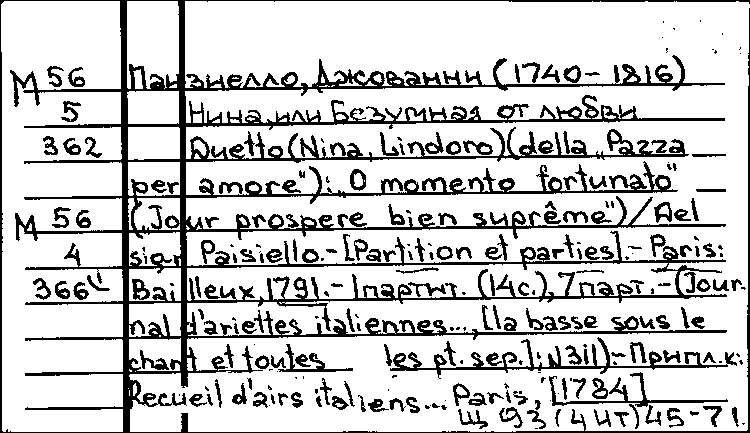 М 56 Паизиелло, Джованни (1740-1816)
5 Нина, или Безумная от любви
362 Duetto (Nina, Lindoro) (della „Pazza
per amore"): „O momento fortunato"
М 56 („Jour prospere bien suprême") / Del
4 sigr Paisiello.- [Partition et parties].- Paris:
366 Bailleux, 1791.- 1 партит. (14 с.), 7 парт.- (Jour
nal d'ariettes italiennes..., [la basse sous le
chant et toutes les pt. sep.]; N 311).- Припл. к:
Recueil d'airs italiens... Paris, [1784]
Щ 93 (4 ИТ) 45-71